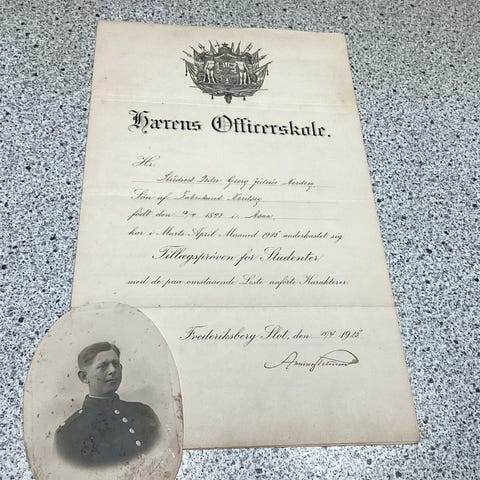 Hærens Officerskole.
Hr.
Student Peder Georg Julius
Søn af Fabrikant
født den 1893 i
har i Marts-April Maaned 1915 underkastet sig
Tillægsprøven for Studenter
med de paa omstaaende Liste anførte Karakterer.
Frederiksberg Slot, den 1915